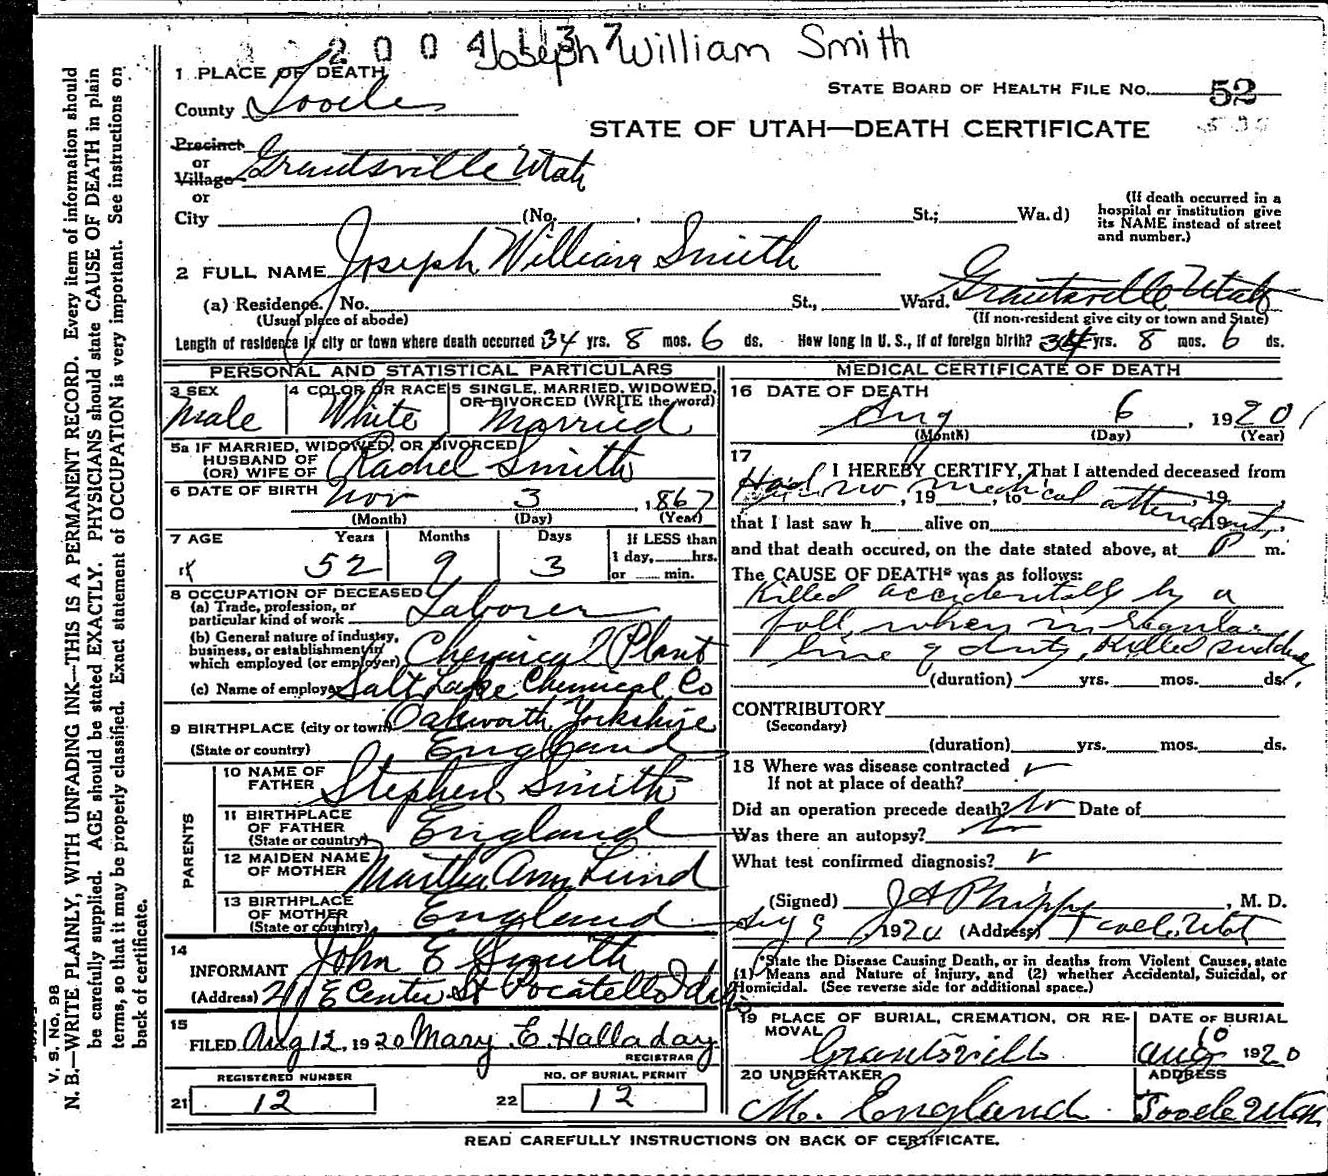 2004137
Joseph William Smith
1 PLACE OF DEATH
County Tooele
STATE BOARD OF HEALTH FILE NO. 52
STATE OF UTAH—DEATH CERTIFICATE
Precinct
or
Village Grantsville Utah
or
City (No. , St.; Wa.d)
(If death occurred in a
hospital or institution give
its NAME instead of street
and number.)
2 FULL NAME Joseph William Smith
(a) Residence. No. St., Ward. Grantsville Utah
(Usual place of abode) (If non-resident give city or town and State)
Length of residence in city or town where death occurred 34 yrs. 8 mos. 6 ds. How long in U. S., if of foreign birth? 34 yrs. 8 mos. 6 ds.
PERSONAL AND STATISTICAL PARTICULARS
3 SEX
Male
4 COLOR OR RACE
White
5 SINGLE, MARRIED, WIDOWED,
OR DIVORCED (WRITE the word)
Married
5a IF MARRIED, WIDOWED, OR DIVORCED
HUSBAND OF
(OR) WIFE OF Rachel Smith
6 DATE OF BIRTH Nov 3 , 1867
(Month) (Day) (Year)
7 AGE Years Months Days If LESS than
1 day, hrs.
or min.
52 9 3
8 OCCUPATION OF DECEASED
(a) Trade, profession, or
particular kind of work Laborer
(b) General nature of industry,
business, or establishment in
which employed (or employer) Chemical Plant
(c) Name of employer Salt Lake Chemical Co
9 BIRTHPLACE (city or town) Oakworth Yorkshire
(State or country) England
PARENTS
10 NAME OF
FATHER Stephen Smith
11 BIRTHPLACE
OF FATHER
(State or country) England
12 MAIDEN NAME
OF MOTHER Martha Ann Lund
13 BIRTHPLACE
OF MOTHER
(State or country) England
14
INFORMANT John E Smith
(Address) E Center St Pocatello Idaho
15
FILED Aug 12, 1920 Mary E. Halladay
REGISTRAR
REGISTERED NUMBER
21 12
NO. OF BURIAL PERMIT
22 12
MEDICAL CERTIFICATE OF DEATH
16 DATE OF DEATH
Aug 6 , 1920
(Month) (Day) (Year)
17
I HEREBY CERTIFY, That I attended deceased from
Had no medical attendant , 19 , to , 19 ,
that I last saw h alive on , 19 ,
and that death occured, on the date stated above, at P m.
The CAUSE OF DEATH* was as follows:
Killed accidentally by a
fall, when in regular
line of duty, Killed suddenly
(duration) yrs. mos. ds.
CONTRIBUTORY
(Secondary)
(duration) yrs. mos. ds.
18 Where was disease contracted
If not at place of death?
Did an operation precede death? No Date of
Was there an autopsy? No
What test confirmed diagnosis?
(Signed) J A Phipps , M. D.
Aug 9 , 1920 (Address) Tooele Utah
*State the Disease Causing Death, or in deaths from Violent Causes, state
(1) Means and Nature of Injury, and (2) whether Accidental, Suicidal, or
Homicidal. (See reverse side for additional space.)
19 PLACE OF BURIAL, CREMATION, OR RE-
MOVAL
Grantsville
DATE OF BURIAL
Aug 10 1920
20 UNDERTAKER
M. England
ADDRESS
Tooele Utah
READ CAREFULLY INSTRUCTIONS ON BACK OF CERTIFICATE.
V. S. NO. 98
N. B.—WRITE PLAINLY, WITH UNFADING INK—THIS IS A PERMANENT RECORD. Every item of information should
be carefully supplied. AGE should be stated EXACTLY. PHYSICIANS should state CAUSE OF DEATH in plain
terms, so that it may be properly classified. Exact statement of OCCUPATION is very important. See instructions on
back of certificate.